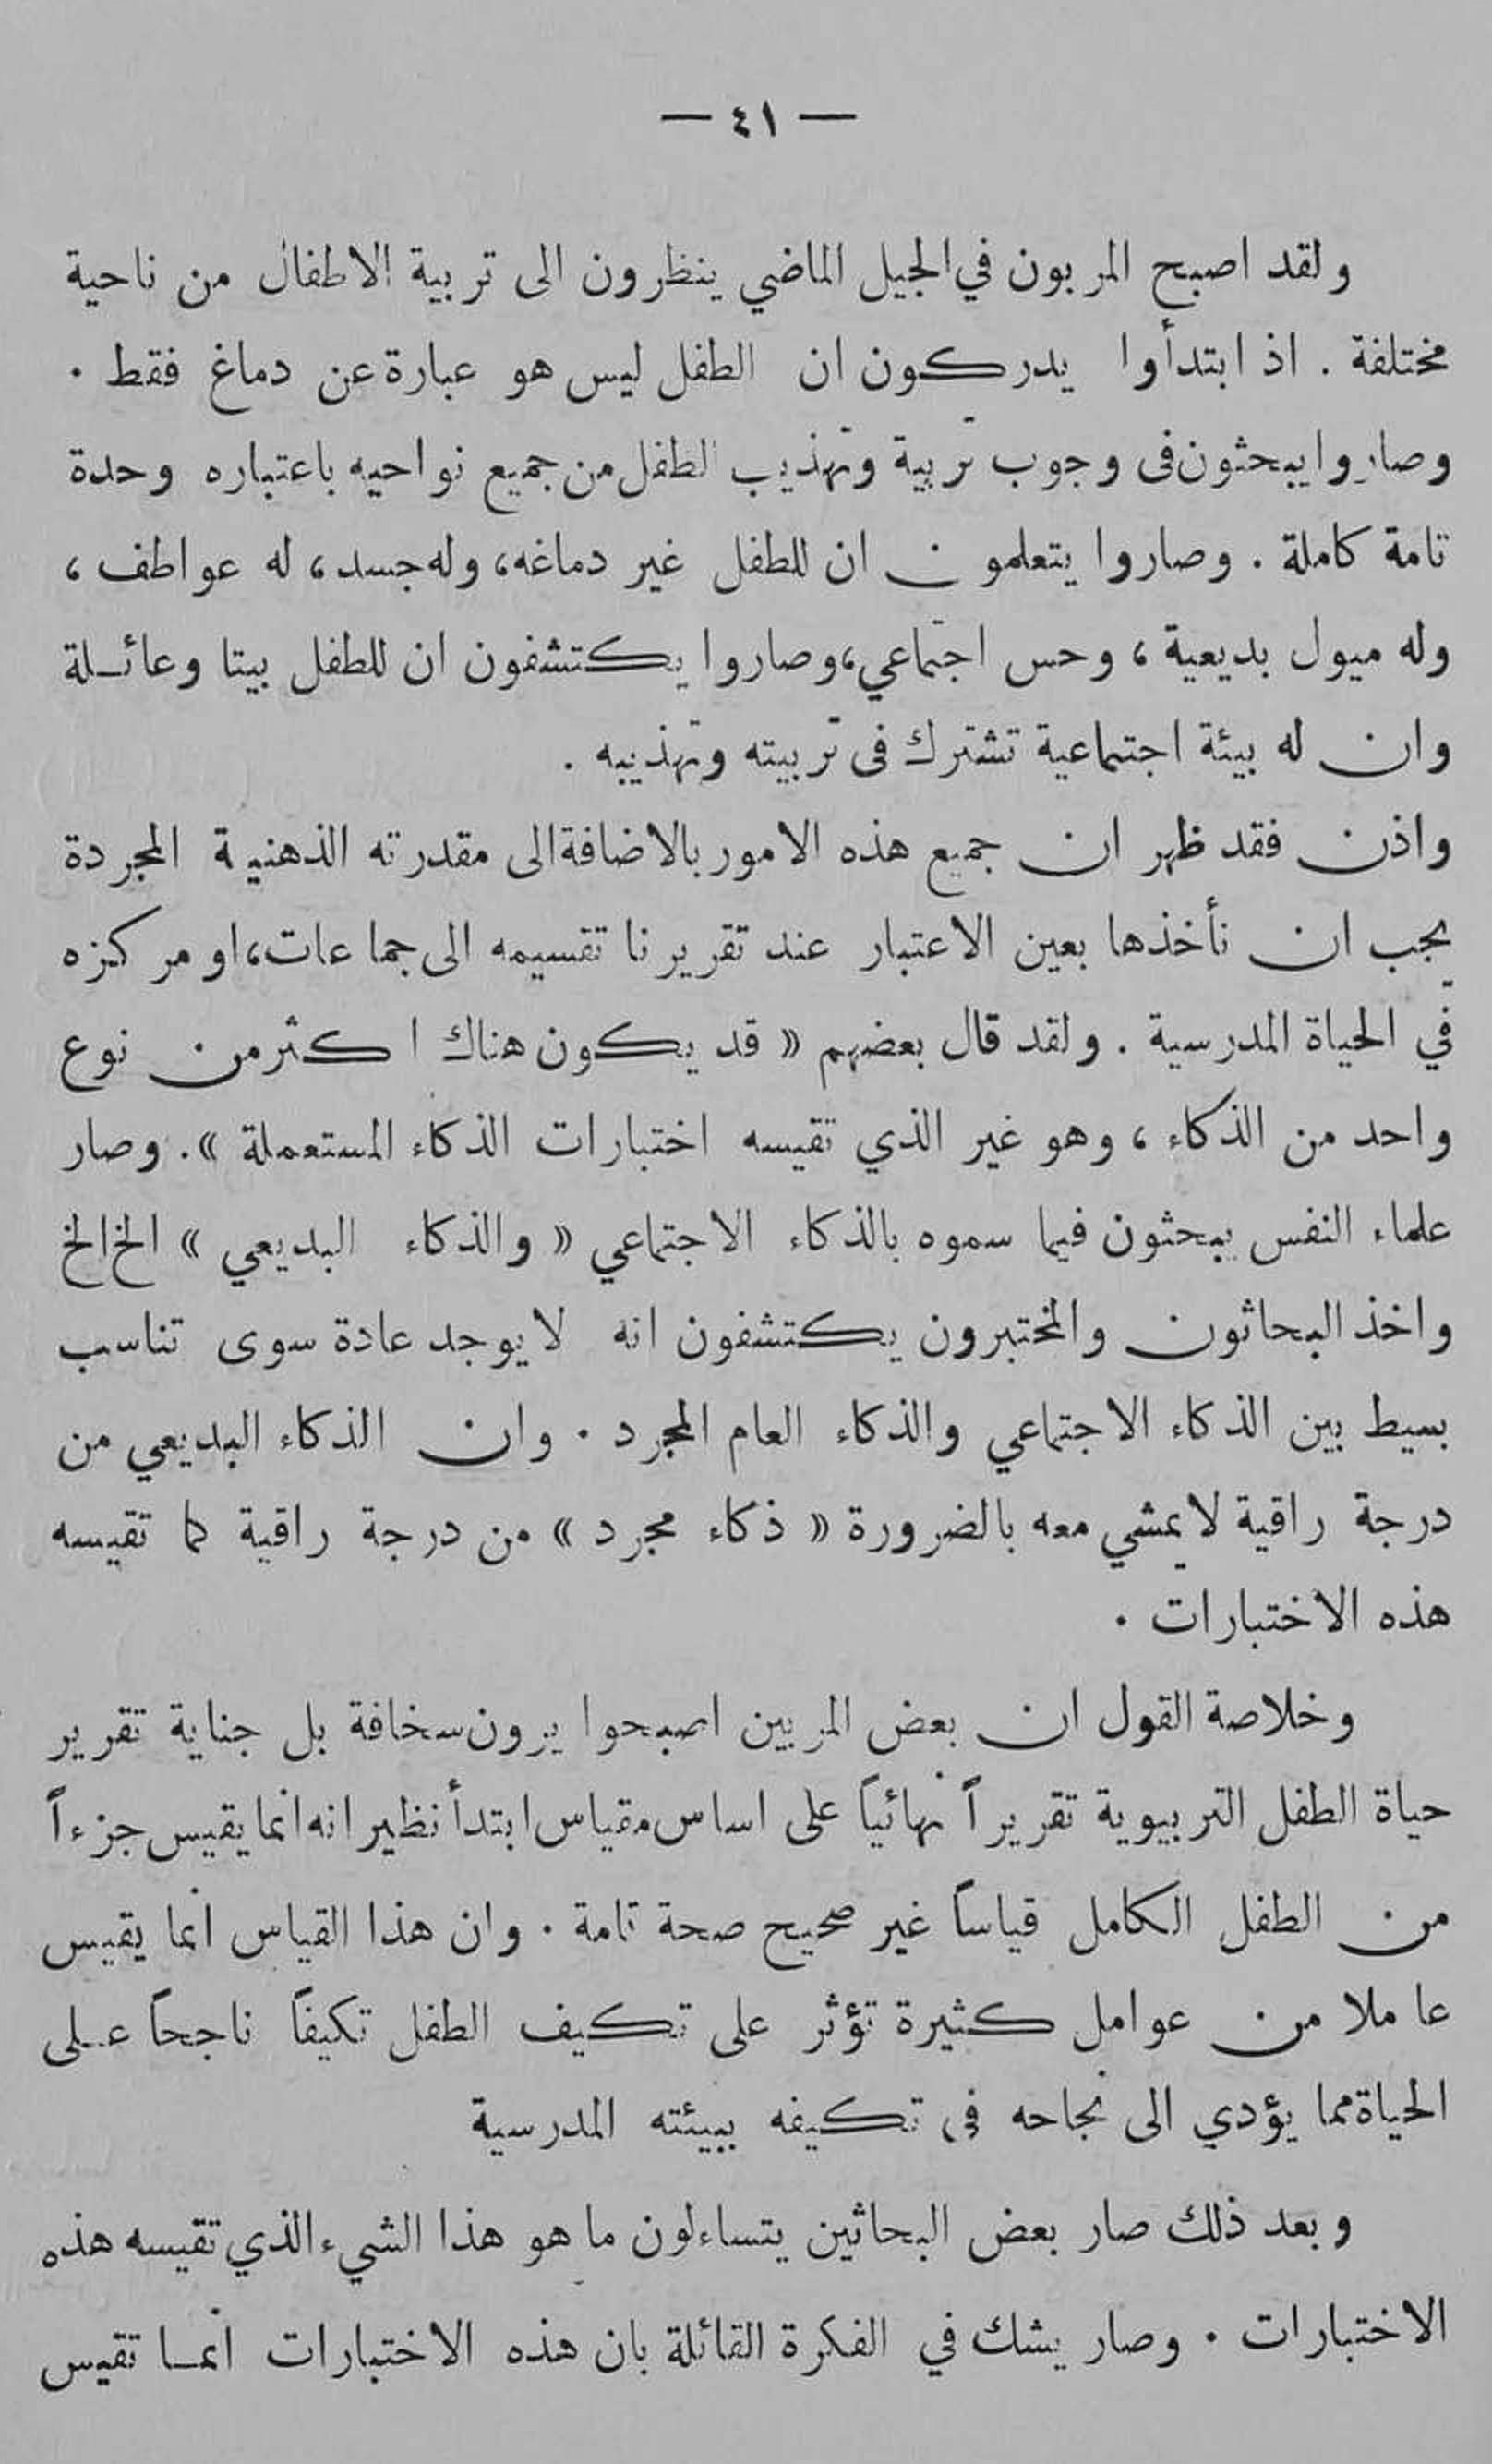 — ٤١ —
ولقد اصبح المربون في الجيل الماضي ينظرون الى تربية الاطفال من ناحية
مختلفة . اذ ابتدأوا يدركون ان الطفل ليس هو عبارة عن دماغ فقط .
وصاروا يبحثون فى وجوب تربية وتهذيب الطفل من جميع نواحيه باعتباره وحدة
تامة كاملة . وصاروا يتعلمون ان للطفل غير دماغه، وله جسد، له عواطف ،
وله ميول بديعية ، وحس اجتماعي، وصاروا يكتشفون ان للطفل بيتا وعائلة
وان له بيئة اجتماعية تشترك فى تربيته وتهذيبه .
واذن فقد ظهر ان جميع هذه الامور بالاضافة الى مقدرته الذهنية المجردة
يجب ان نأخذها بعين الاعتبار عند تقريرنا تقسيمه الى جماعات، او مركزه
في الحياة المدرسية . ولقد قال بعضهم « قد يكون هناك اكثر من نوع
واحد من الذكاء ، وهو غير الذي تقيسه اختبارات الذكاء المستعملة » . وصار
علماء النفس يبحثون فيما سموه بالذكاء الاجتماعي « والذكاء البديعي » الخ الخ
واخذ البحاثون والمختبرون يكتشفون انه لا يوجد عادة سوى تناسب
بسيط بين الذكاء الاجتماعي والذكاء العام المجرد . وان الذكاء البديعي من
درجة راقية لا يمشي معه بالضرورة « ذكاء مجرد » من درجة راقية كما تقيسه
هذه الاختبارات .
وخلاصة القول ان بعض المربين اصبحوا يرون سخافة بل جناية تقرير
حياة الطفل التربيوية تقريراً نهائياً على اساس مقياس ابتدأ نظير انه انما يقيس جزءاً
من الطفل الكامل قياساً غير صحيح صحة تامة . وان هذا القياس انما يقيس
عاملا من عوامل كثيرة تؤثر على تكيف الطفل تكيفاً ناجحاً على
الحياة مما يؤدي الى نجاحه في تكيفه ببيئته المدرسية
وبعد ذلك صار بعض البحاثين يتساءلون ما هو هذا الشيء الذي تقيسه هذه
الاختبارات . وصار يشك في الفكرة القائلة بان هذه الاختبارات انما تقيس